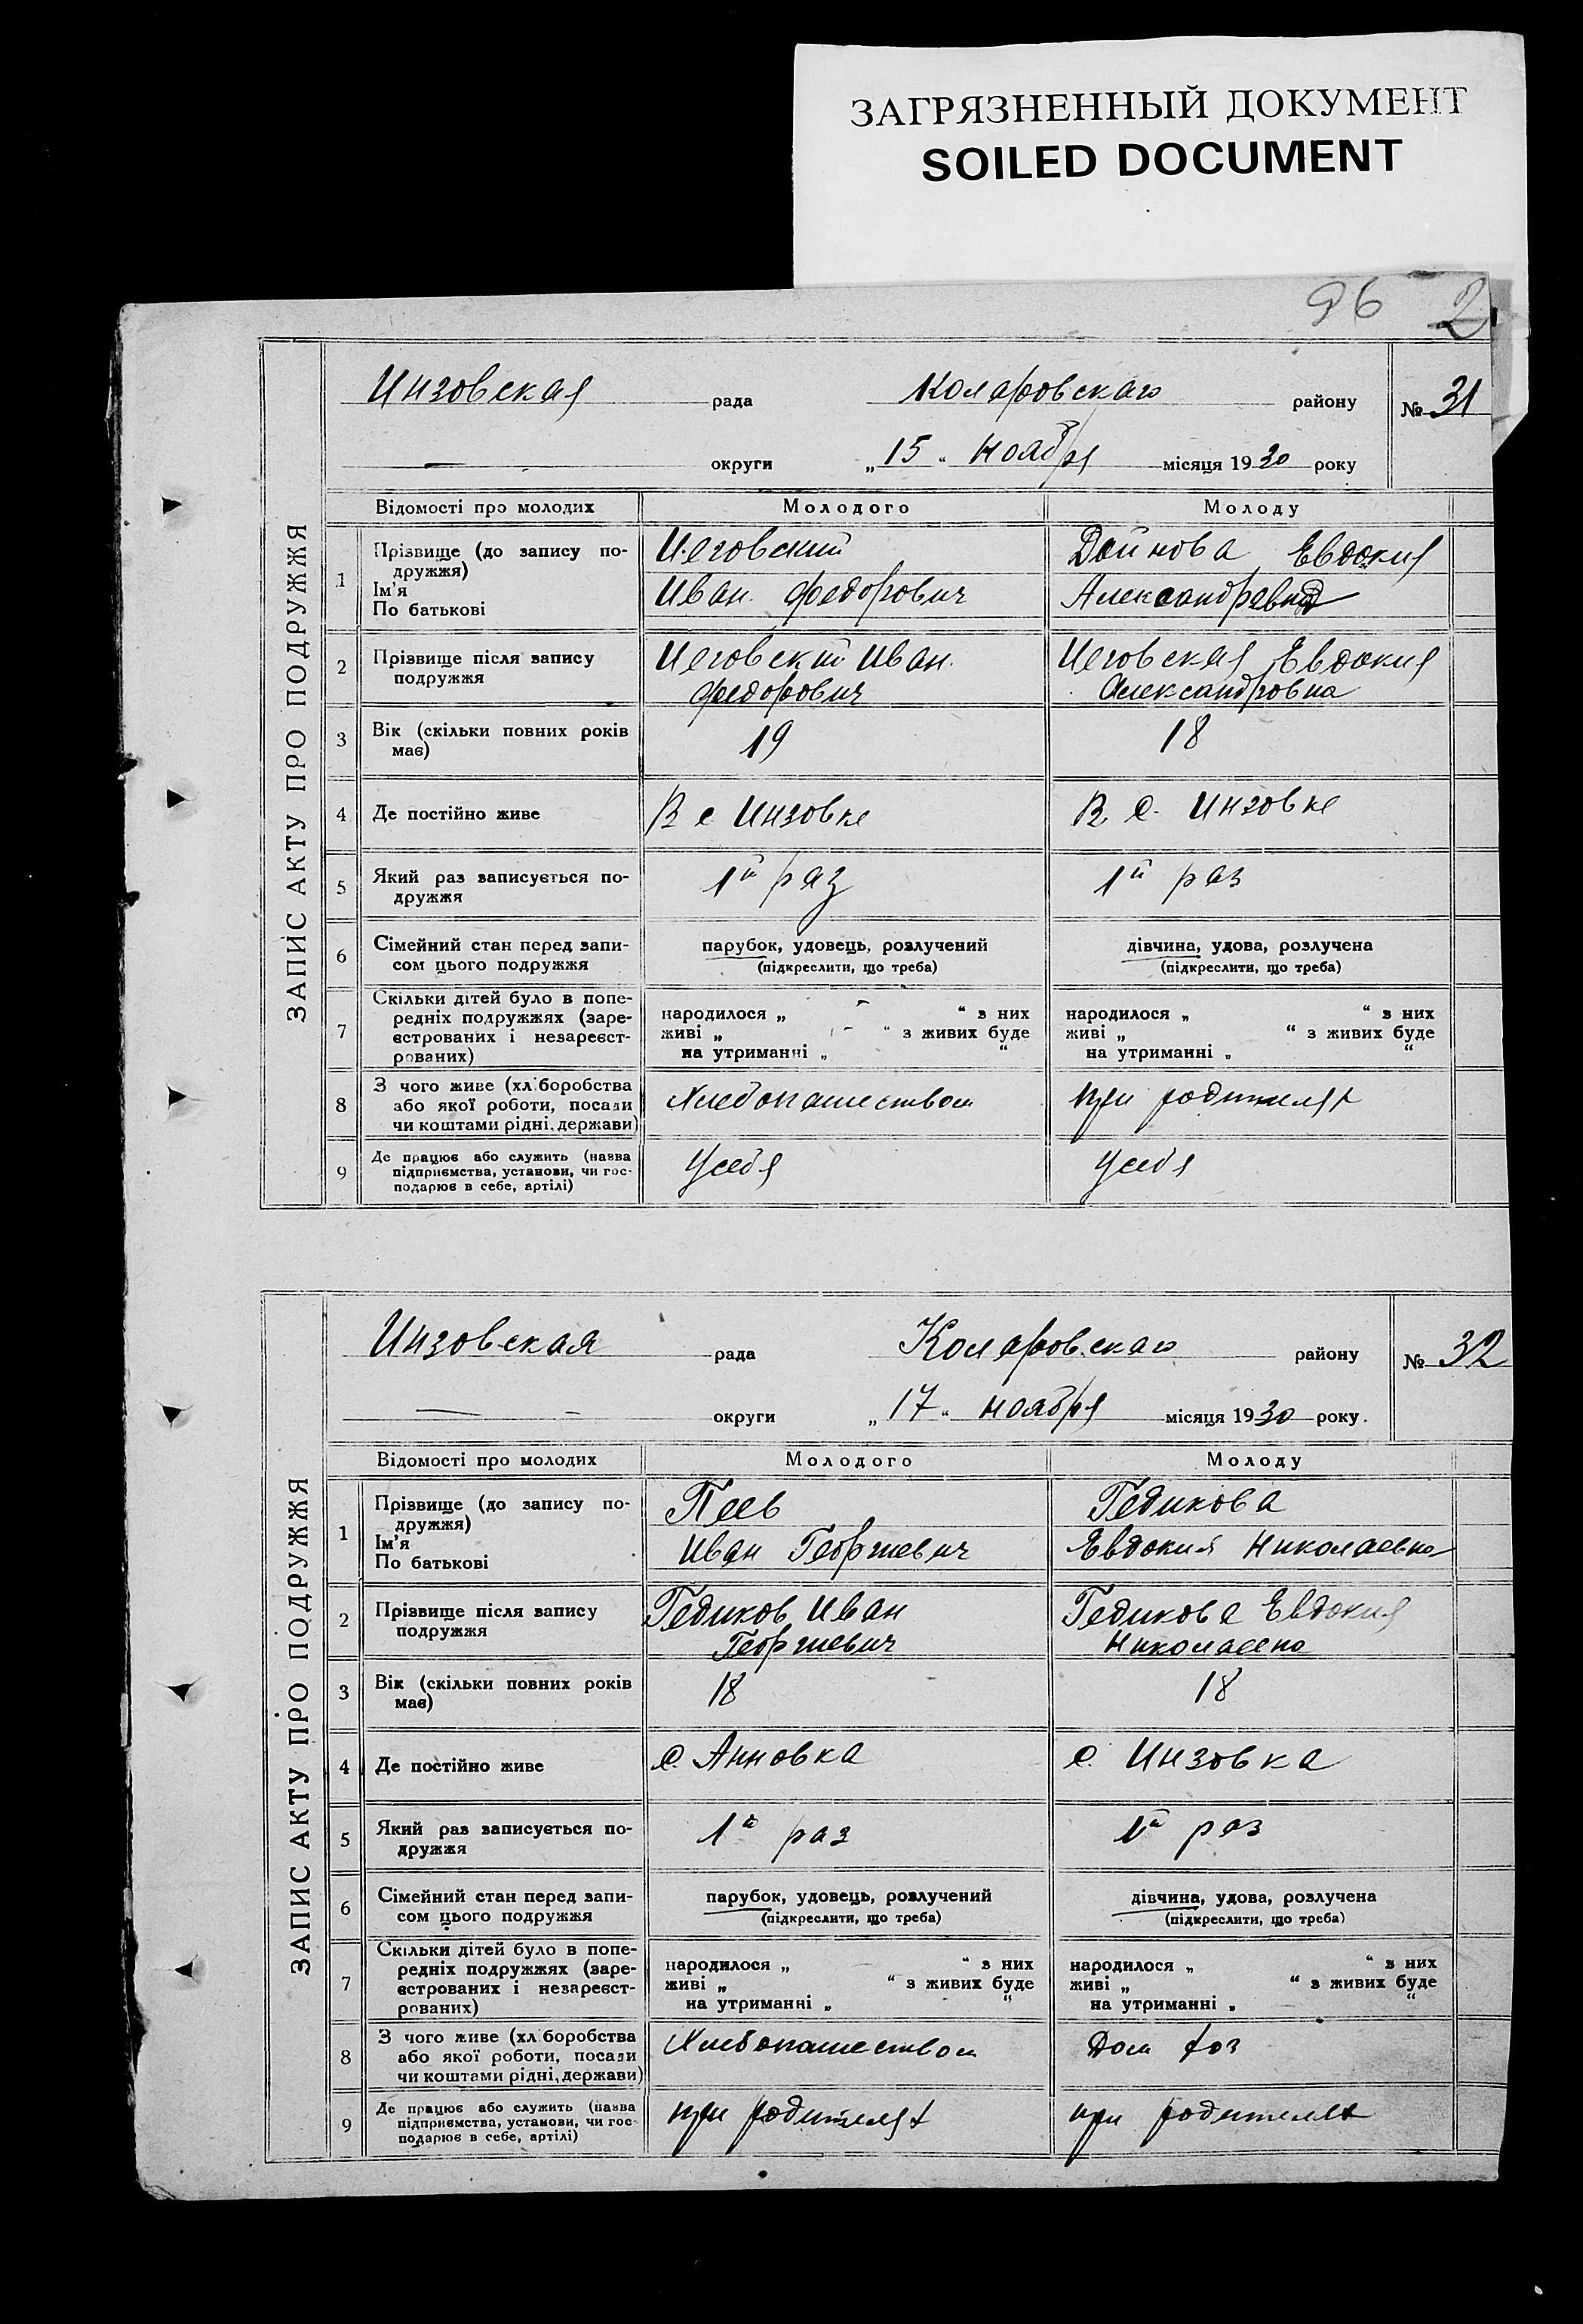 ЗАГРЯЗНЕННЫЙ ДОКУМЕНТ
SOILED DOCUMENT
96 2
ЗАПИС АКТУ ПРО ПОДРУЖЖЯ
Инзовская рада Коларовского району № 31
— округи „15“ ноября місяця 1930 року
Відомості про молодих Молодого Молоду
1 Прізвище (до запису подружжя) Ім’я По батькові
Иговский Дойнова Евдокия
Иван Федорович Александревна
2 Прізвище після запису подружжя
Иговский Иван Иговская Евдокия
Федорович Александровна
3 Вік (скільки повних років має) 19 18
4 Де постійно живе В с Инзовке В с. Инзовке
5 Який раз записується подружжя 1й раз 1й раз
6 Сімейний стан перед записом цього подружжя парубок, удовець, розлучений дівчина, удова, розлучена
(підкреслити, що треба) (підкреслити, що треба)
7 Скільки дітей було в попередніх подружжях (зареєстрованих і незареєстрованих)
народилося „ – “ з них народилося „ “ з них
живі „ – “ з живих буде живі „ “ з живих буде
на утриманні „ “ на утриманні „ “
8 З чого живе (хліборобства або якої роботи, посади чи коштами рідні, держави) Хлебопашеством при родителях
9 Де працює або служить (назва підприємства, установи, чи господарює в себе, артілі) У себя У себя
ЗАПИС АКТУ ПРО ПОДРУЖЖЯ
Инзовская рада Коларовского району № 32
— округи „17“ ноября місяця 1930 року.
Відомості про молодих Молодого Молоду
1 Прізвище (до запису подружжя) Ім’я По батькові
Пеев Гедикова
Иван Георгиевич Евдокия Николаевна
2 Прізвище після запису подружжя
Гедиков Иван Гедикова Евдокия
Георгиевич Николаевна
3 Вік (скільки повних років має) 18 18
4 Де постійно живе с. Анновка с. Инзовка
5 Який раз записується подружжя 1й раз 1й раз
6 Сімейний стан перед записом цього подружжя парубок, удовець, розлучений дівчина, удова, розлучена
(підкреслити, що треба) (підкреслити, що треба)
7 Скільки дітей було в попередніх подружжях (зареєстрованих і незареєстрованих)
народилося „ “ з них народилося „ “ з них
живі „ “ з живих буде живі „ “ з живих буде
на утриманні „ “ на утриманні „ “
8 З чого живе (хліборобства або якої роботи, посади чи коштами рідні, держави) Хлебопашеством Дом хоз
9 Де працює або служить (назва підприємства, установи, чи господарює в себе, артілі) при родителях при родителях